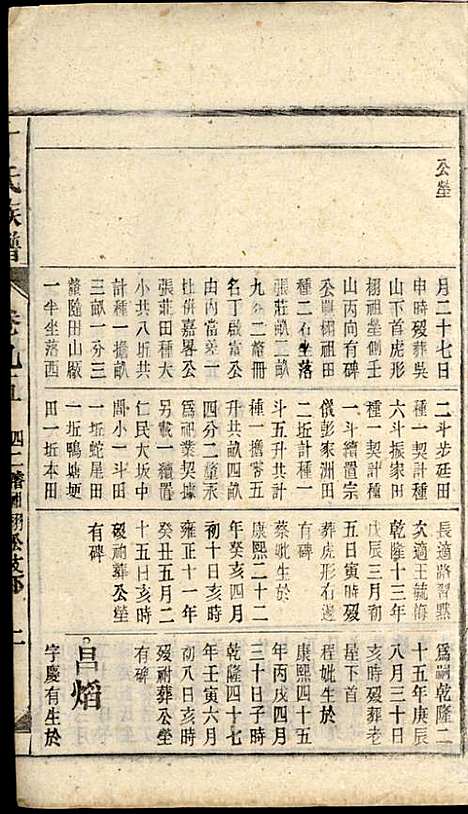 公塋
月二十七日
申時歿葬吳
山下首虎形
栩祖塋側壬
山丙向有碑
公興栩祖田
種二石坐落
張莊畝三畝
九分二釐冊
名丁啟富公
由內當差一
併嘉畧公
張莊田種大
小共八坵共
計種一擔畝
三畝一分三
釐隨田山厫
一半坐落西
二斗步延田
種一契種三
六斗振家田
種一契計種
一斗續置宗
儀彭家洲田
二坵計種一
斗五升共計
種一擔零五
升共畝四畝
四分二釐承
祖業契據
另載一續置
仁民大坂中
間小一斗田
一坵蛇尾田
一坵鴨塘梗
田一坵本田
長適路習黙
次適王毓海
乾隆十三年
戊辰三月初
五日寅時歿
葬虎形右邊
有碑
蔡妣生於
康熙二十二
年癸亥四月
初十日亥時
雍正十一年
癸丑五月二
十五日亥時
歿祔葬公塋
有碑
爲嗣乾隆二
十五年庚辰
八月三十日
亥時歿葬老
屋下首
程妣生於
康熙四十五
年丙戌四月
三十日子時
乾隆四十七
年壬寅六月
初八日亥時
歿祔葬公塋
有碑
昌熖
字慶有生於
氏族譜
卷九五
二